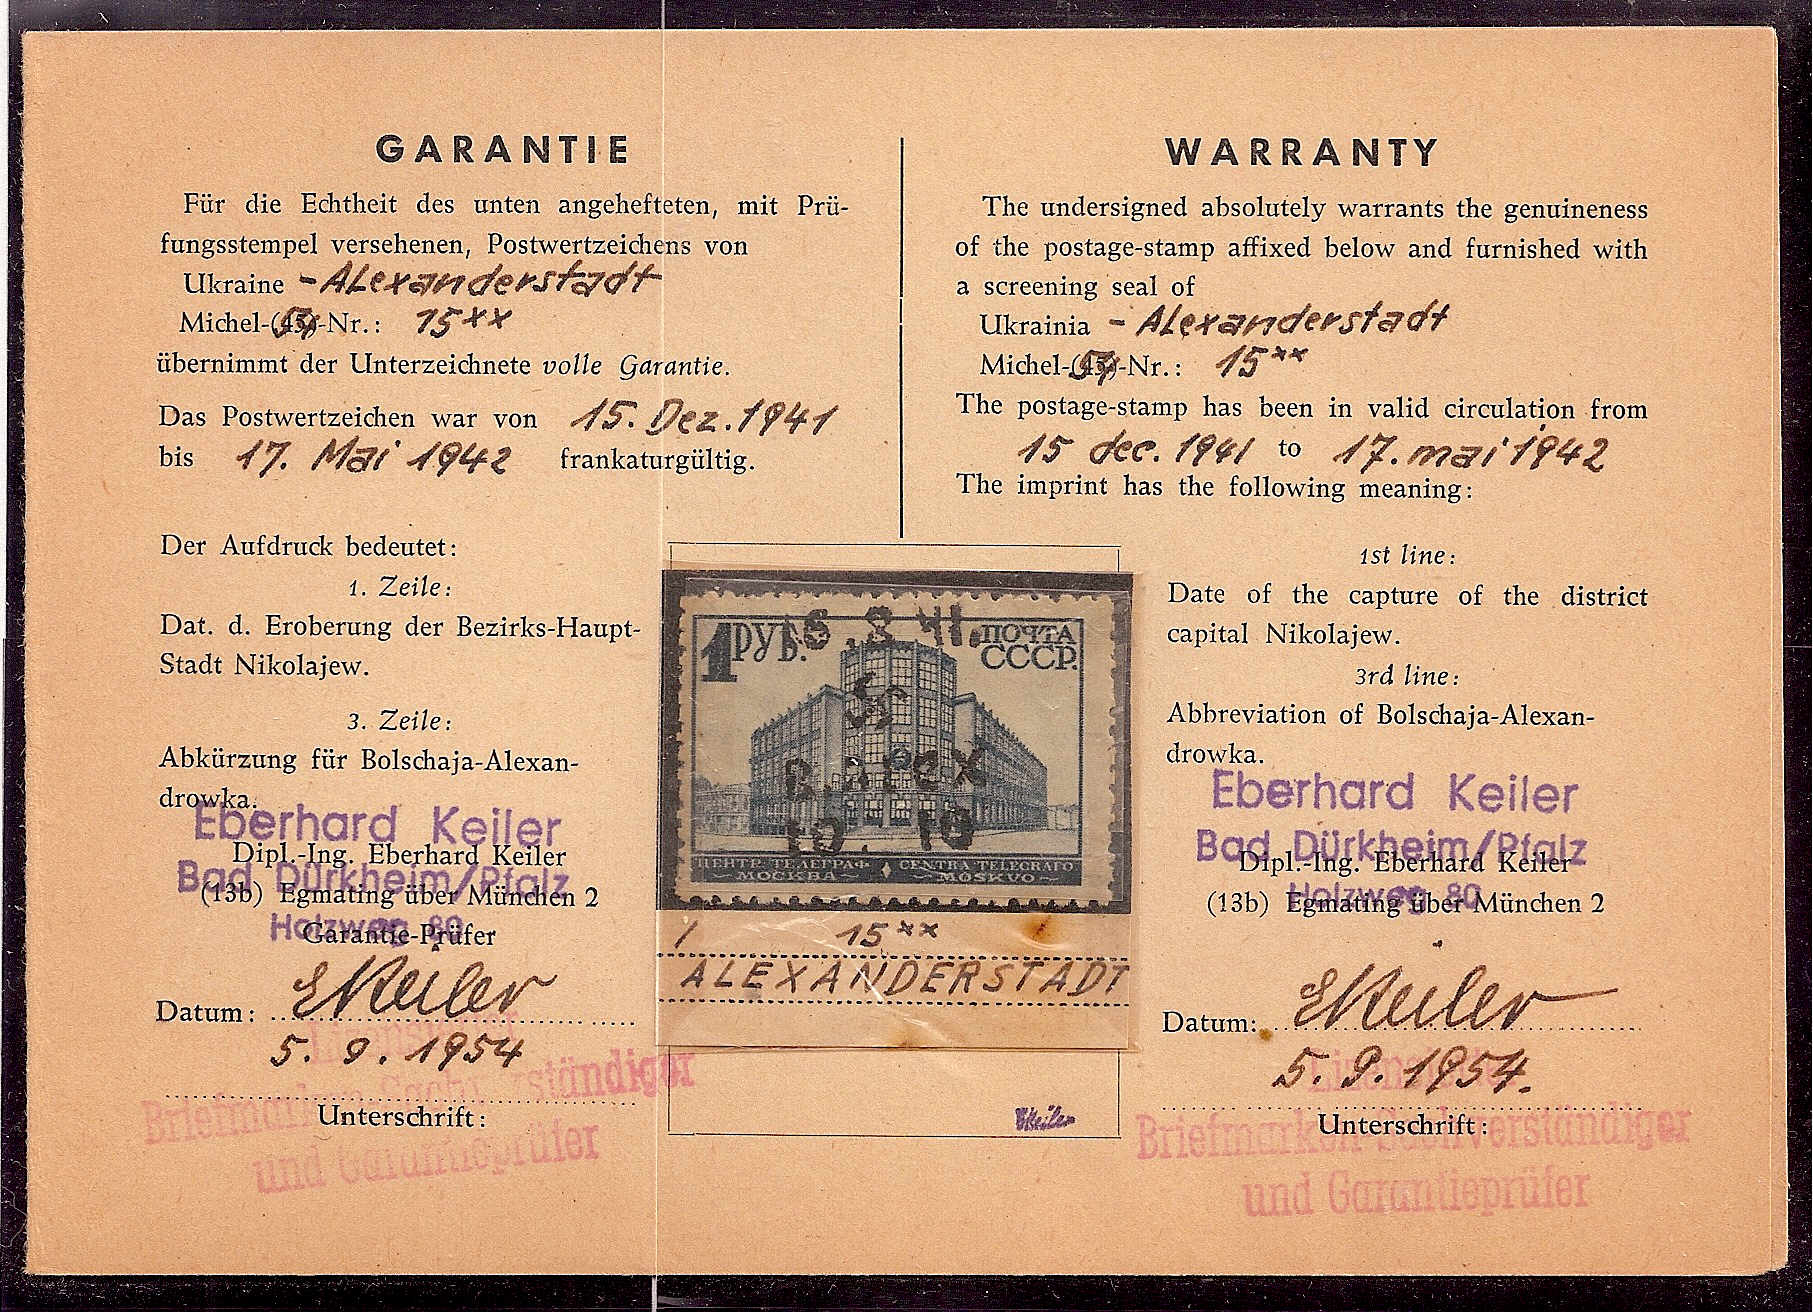 GARANTIE
Für die Echtheit des unten angehefteten, mit Prü-
fungsstempel versehenen, Postwertzeichens von
Ukraine - Alexanderstadt
Michel- -Nr.: 15××
übernimmt der Unterzeichnete volle Garantie.
Das Postwertzeichen war von 15. Dez. 1941
bis 17. Mai 1942 frankaturgültig.
Der Aufdruck bedeutet:
1. Zeile:
Dat. d. Eroberung der Bezirks-Haupt-
Stadt Nikolajew.
3. Zeile:
Abkürzung für Bolschaja-Alexan-
drowka.
Eberhard Keiler
Dipl.-Ing. Eberhard Keiler
Bad Dürkheim/Pfalz
(13b) Egmating über München 2
Holzweg 80
Garantie-Prüfer
EKeiler
Datum:
5. 9. 1954
Briefmarken-Sachverständiger
Unterschrift:
und Garantieprüfer
1 РУБ.
ПОЧТА
СССР.
16.8.41.
B.Alex
10. 10
ЦЕНТР. ТЕЛЕГРАФ CENTRA TELEGRAFO
МОСКВА MOSKVO
1 15××
ALEXANDERSTADT
EKeiler
WARRANTY
The undersigned absolutely warrants the genuineness
of the postage-stamp affixed below and furnished with
a screening seal of
Ukrainia - Alexanderstadt
Michel- -Nr.: 15××
The postage-stamp has been in valid circulation from
15 dec. 1941 to 17. mai 1942
The imprint has the following meaning:
1st line:
Date of the capture of the district
capital Nikolajew.
3rd line:
Abbreviation of Bolschaja-Alexan-
drowka.
Eberhard Keiler
Bad Dürkheim/Pfalz
Dipl.-Ing. Eberhard Keiler
Holzweg 80
(13b) Egmating über München 2
EKeiler
Datum:
5. 9. 1954.
Briefmarken-Sachverständiger
Unterschrift:
und Garantieprüfer